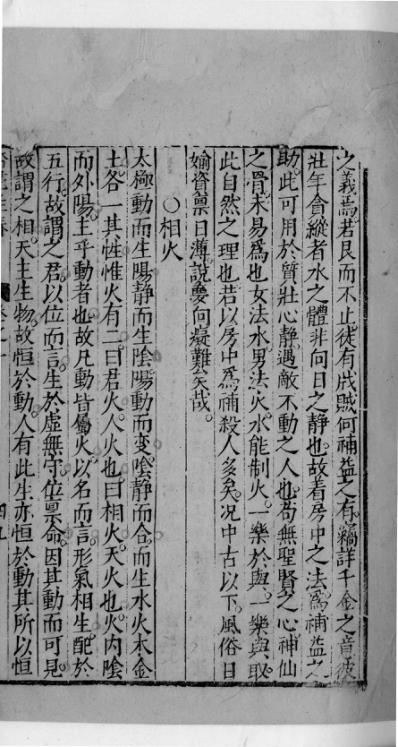 之義焉若艮而不止徒有戕賊何補益之有竊詳千金之意彼
壯年貪縱者水之體非向日之靜也故著房中之法為補益之
助。此可用於質壯心靜遇敵不動之人也苟無聖賢之心神仙
之骨未易為也女法水男法火水能制火一樂於與一樂與取
此自然之理也若以房中為補殺人多矣况中古以下風俗日
婾資禀日薄說夢向癡難矣哉
○相火
太極動而生陽靜而生陰陽動而变陰靜而合而生水火木金
土各一其性惟火有二曰君火人火也曰相火天火也火內陰
而外陽主乎動者也故凡動皆屬火以名而言形氣相生配於
五行故謂之君以位而言生於虛無守位禀命因其動而可見
故謂之相天主生物故恒於動人有此生亦恒於動其所以恒